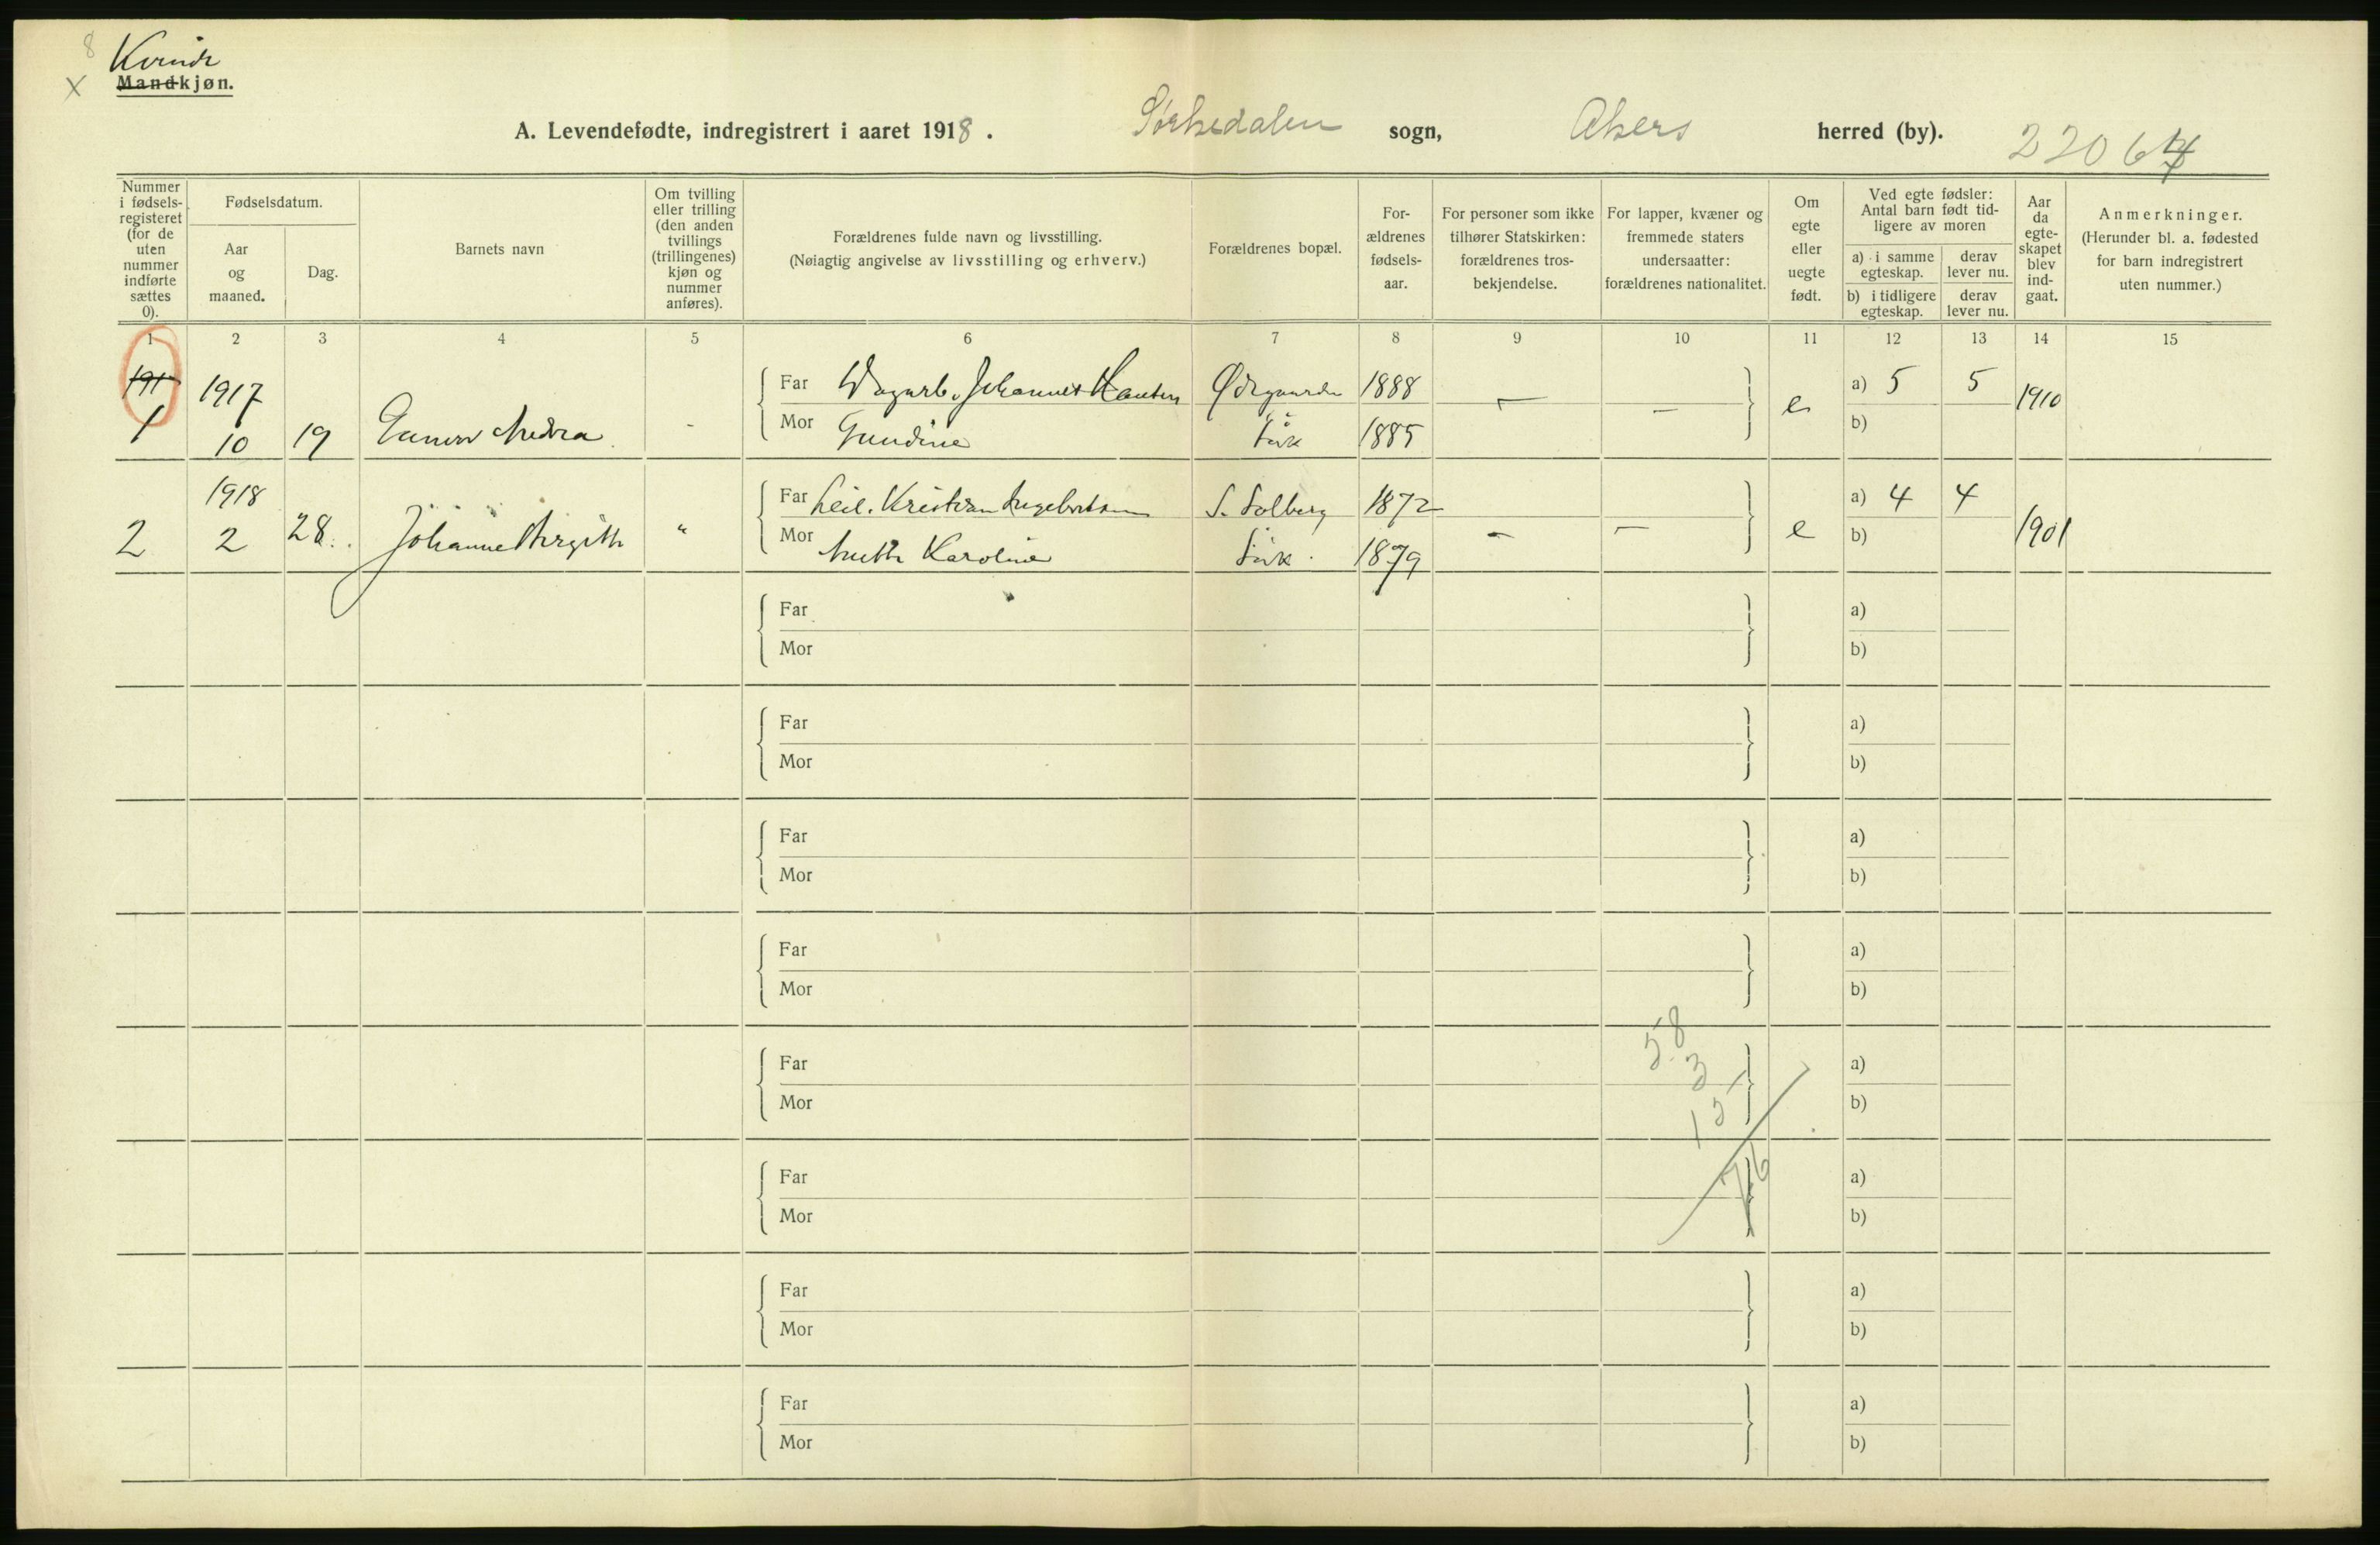 8 Kvinde
x Mandkjøn.
A. Levendefødte, indregistrert i aaret 1918. Sørkedalen sogn, Akers herred (by). 22064
Nummer i fødsels-registeret (for de uten nummer indførte sættes 0).
Fødselsdatum.
Aar og maaned.
Dag.
Barnets navn
Om tvilling eller trilling (den anden tvillings (trillingenes) kjøn og nummer anføres).
Forældrenes fulde navn og livsstilling.
(Nøiagtig angivelse av livsstilling og erhverv.)
Forældrenes bopæl.
For-ældrenes fødsels-aar.
For personer som ikke tilhører Statskirken: forældrenes tros-bekjendelse.
For lapper, kvæner og fremmede staters undersaatter: forældrenes nationalitet.
Om egte eller uegte født.
Ved egte fødsler: Antal barn født tid-ligere av moren
a) i samme egteskap.
derav lever nu.
b) i tidligere egteskap.
derav lever nu.
Aar da egte-skapet blev ind-gaat.
Anmerkninger.
(Herunder bl. a. fødested for barn indregistrert uten nummer.)
1 2 3 4 5 6 7 8 9 10 11 12 13 14 15
1917 Far Johannes Hansen 1888 — — e a) 5 5 1910
1 10 19 - Mor Gundine 1885 b)
1918 Far Leil. Kristian S. Solberg 1872 - — e a) 4 4 1901
2 2 28. Johanne Birgith " Mor Karoline 1879 b)
Far a)
Mor b)
Far a)
Mor b)
Far a)
Mor b)
Far a)
Mor b)
58
Far 3 a)
Mor 15 b)
Far 76 a)
Mor b)
Far a)
Mor b)
Far a)
Mor b)